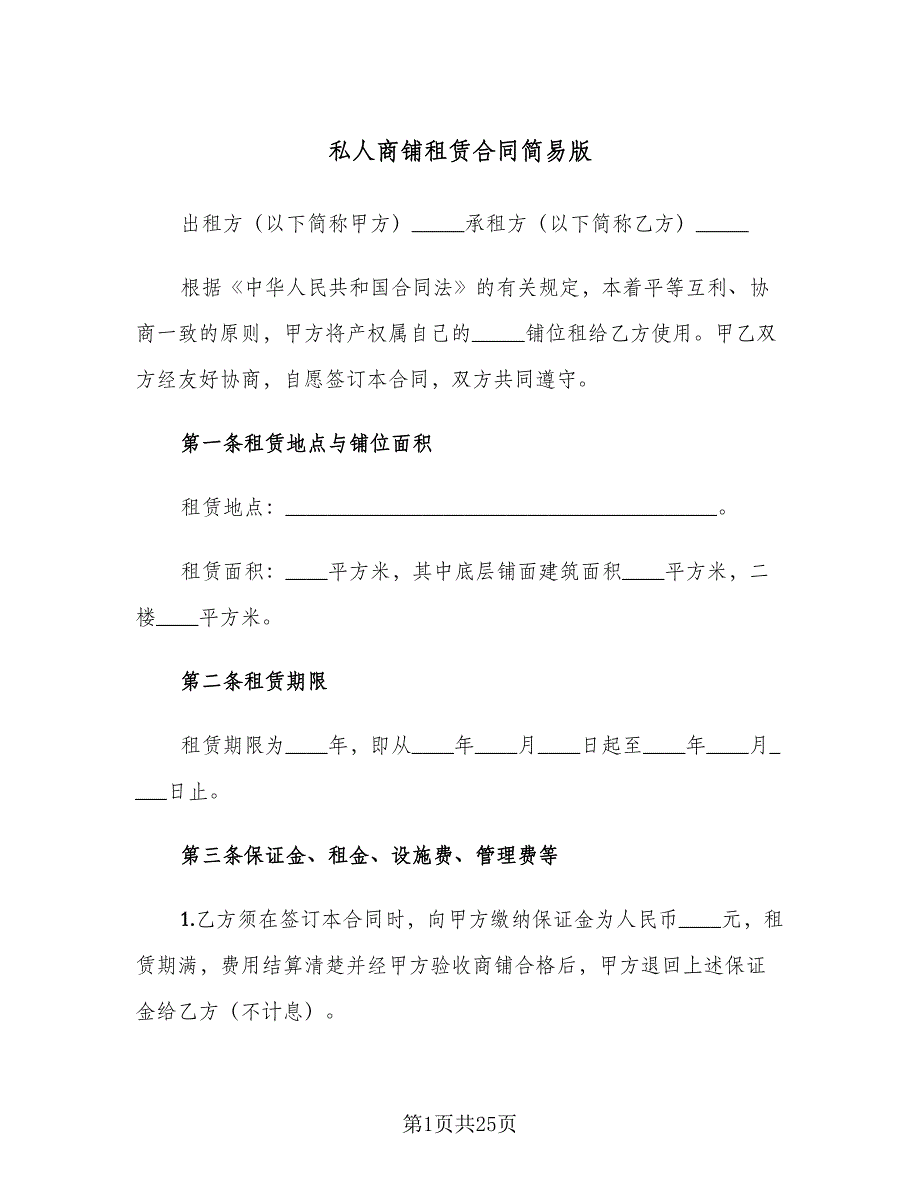 私人商铺租赁合同简易版
出租方（以下简称甲方）_____承租方（以下简称乙方）_____
根据《中华人民共和国合同法》的有关规定，本着平等互利、协
商一致的原则，甲方将产权属自己的_____铺位租给乙方使用。甲乙双
方经友好协商，自愿签订本合同，双方共同遵守。
第一条租赁地点与铺位面积
租赁地点：_________________________________________。
租赁面积：____平方米，其中底层铺面建筑面积____平方米，二
楼____平方米。
第二条租赁期限
租赁期限为____年，即从____年____月____日起至____年____月_
___日止。
第三条保证金、租金、设施费、管理费等
1.乙方须在签订本合同时，向甲方缴纳保证金为人民币____元，租
赁期满，费用结算清楚并经甲方验收商铺合格后，甲方退回上述保证
金给乙方（不计息）。
第1页共25页